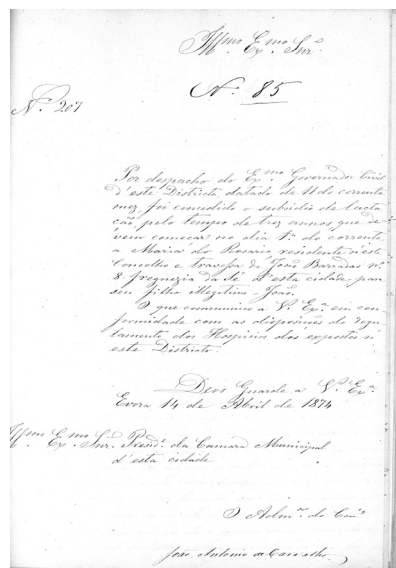 Illmo e Exmo Snr.
N.º 85
N.º 207
Por despacho do Exmo Governador Civil
d'este Districto, datado de 11 do corrente
mez, foi concedido o subsidio de lacta
ção pelo tempo de trez annos, que de
vem começar no dia 1.º do corrente
a Maria do Rosario residente n'este
Concelho e travessa de João Barradas n.º
8 freguezia da Sé d'esta cidade para
seu filho legitimo João.
O que communico a V.ª Ex.ª em con
formidade com as disposições do regu
lamento dos Hospicios dos expostos n
este Districto.
Deus Guarde a V.ª Ex.ª
Evora 14 de Abril de 1874
Illmo e Exmo Snr. Presid.e da Camara Municipal
d'esta cidade
O Adm.or do Con.o
José Antonio de Carvalho